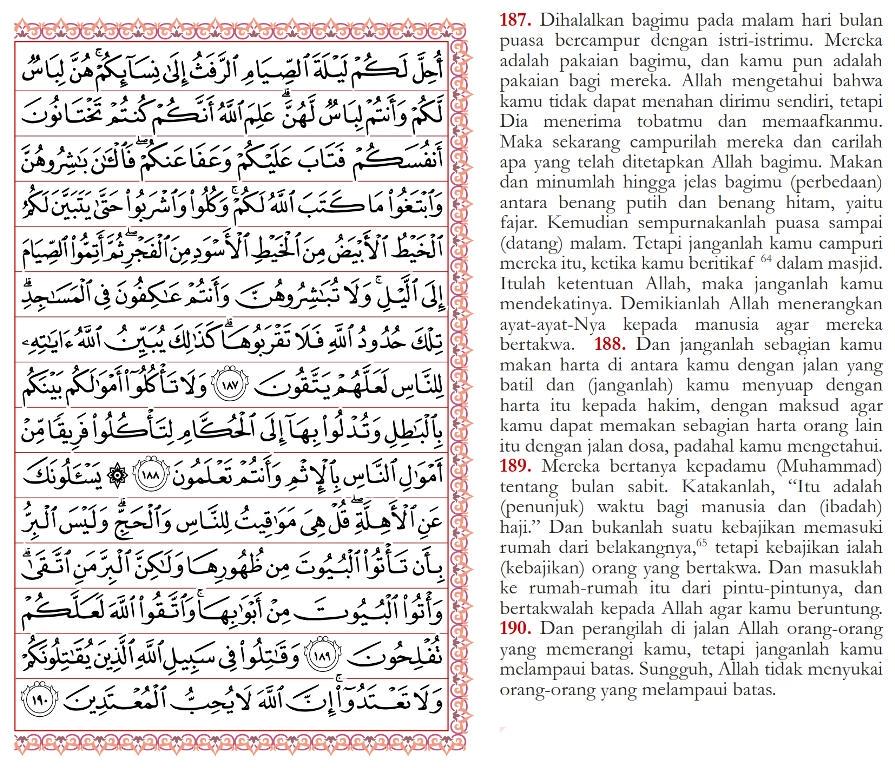 أُحِلَّ لَكُمْ لَيْلَةَ ٱلصِّيَامِ ٱلرَّفَثُ إِلَىٰ نِسَآئِكُمْ ۚ هُنَّ لِبَاسٌ
لَّكُمْ وَأَنتُمْ لِبَاسٌ لَّهُنَّ ۗ عَلِمَ ٱللَّهُ أَنَّكُمْ كُنتُمْ تَخْتَانُونَ
أَنفُسَكُمْ فَتَابَ عَلَيْكُمْ وَعَفَا عَنكُمْ ۖ فَٱلْـَٰٔنَ بَـٰشِرُوهُنَّ
وَٱبْتَغُوا۟ مَا كَتَبَ ٱللَّهُ لَكُمْ ۚ وَكُلُوا۟ وَٱشْرَبُوا۟ حَتَّىٰ يَتَبَيَّنَ لَكُمُ
ٱلْخَيْطُ ٱلْأَبْيَضُ مِنَ ٱلْخَيْطِ ٱلْأَسْوَدِ مِنَ ٱلْفَجْرِ ۖ ثُمَّ أَتِمُّوا۟ ٱلصِّيَامَ
إِلَى ٱلَّيْلِ ۚ وَلَا تُبَـٰشِرُوهُنَّ وَأَنتُمْ عَـٰكِفُونَ فِى ٱلْمَسَـٰجِدِ ۗ
تِلْكَ حُدُودُ ٱللَّهِ فَلَا تَقْرَبُوهَا ۗ كَذَٰلِكَ يُبَيِّنُ ٱللَّهُ ءَايَـٰتِهِۦ
لِلنَّاسِ لَعَلَّهُمْ يَتَّقُونَ ١٨٧ وَلَا تَأْكُلُوٓا۟ أَمْوَٰلَكُم بَيْنَكُم
بِٱلْبَـٰطِلِ وَتُدْلُوا۟ بِهَآ إِلَى ٱلْحُكَّامِ لِتَأْكُلُوا۟ فَرِيقًا مِّنْ
أَمْوَٰلِ ٱلنَّاسِ بِٱلْإِثْمِ وَأَنتُمْ تَعْلَمُونَ ١٨٨ ۞ يَسْـَٔلُونَكَ
عَنِ ٱلْأَهِلَّةِ ۖ قُلْ هِىَ مَوَٰقِيتُ لِلنَّاسِ وَٱلْحَجِّ ۗ وَلَيْسَ ٱلْبِرُّ
بِأَن تَأْتُوا۟ ٱلْبُيُوتَ مِن ظُهُورِهَا وَلَـٰكِنَّ ٱلْبِرَّ مَنِ ٱتَّقَىٰ ۗ
وَأْتُوا۟ ٱلْبُيُوتَ مِنْ أَبْوَٰبِهَا ۚ وَٱتَّقُوا۟ ٱللَّهَ لَعَلَّكُمْ
تُفْلِحُونَ ١٨٩ وَقَـٰتِلُوا۟ فِى سَبِيلِ ٱللَّهِ ٱلَّذِينَ يُقَـٰتِلُونَكُمْ
وَلَا تَعْتَدُوٓا۟ ۚ إِنَّ ٱللَّهَ لَا يُحِبُّ ٱلْمُعْتَدِينَ ١٩٠
187. Dihalalkan bagimu pada malam hari bulan
puasa bercampur dengan istri-istrimu. Mereka
adalah pakaian bagimu, dan kamu pun adalah
pakaian bagi mereka. Allah mengetahui bahwa
kamu tidak dapat menahan dirimu sendiri, tetapi
Dia menerima tobatmu dan memaafkanmu.
Maka sekarang campurilah mereka dan carilah
apa yang telah ditetapkan Allah bagimu. Makan
dan minumlah hingga jelas bagimu (perbedaan)
antara benang putih dan benang hitam, yaitu
fajar. Kemudian sempurnakanlah puasa sampai
(datang) malam. Tetapi janganlah kamu campuri
mereka itu, ketika kamu beritikaf 64 dalam masjid.
Itulah ketentuan Allah, maka janganlah kamu
mendekatinya. Demikianlah Allah menerangkan
ayat-ayat-Nya kepada manusia agar mereka
bertakwa. 188. Dan janganlah sebagian kamu
makan harta di antara kamu dengan jalan yang
batil dan (janganlah) kamu menyuap dengan
harta itu kepada hakim, dengan maksud agar
kamu dapat memakan sebagian harta orang lain
itu dengan jalan dosa, padahal kamu mengetahui.
189. Mereka bertanya kepadamu (Muhammad)
tentang bulan sabit. Katakanlah, “Itu adalah
(penunjuk) waktu bagi manusia dan (ibadah)
haji.” Dan bukanlah suatu kebajikan memasuki
rumah dari belakangnya,65 tetapi kebajikan ialah
(kebajikan) orang yang bertakwa. Dan masuklah
ke rumah-rumah itu dari pintu-pintunya, dan
bertakwalah kepada Allah agar kamu beruntung.
190. Dan perangilah di jalan Allah orang-orang
yang memerangi kamu, tetapi janganlah kamu
melampaui batas. Sungguh, Allah tidak menyukai
orang-orang yang melampaui batas.